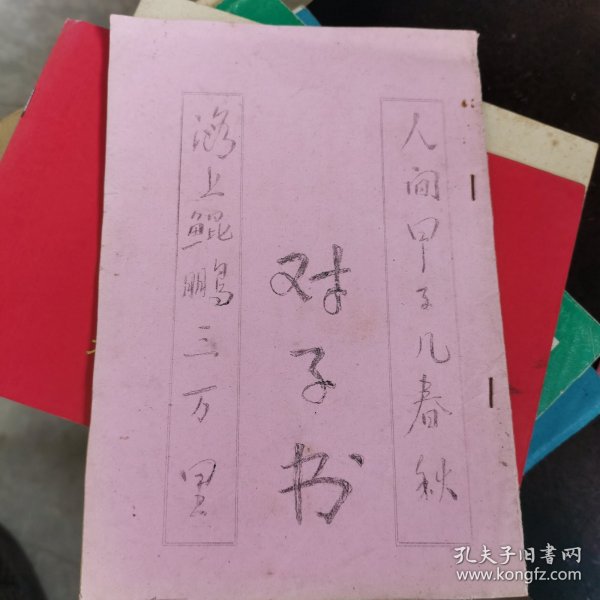 人间甲子几春秋
对子书
海上鲲鹏三万里
孔夫子旧書网
www.kongfz.com